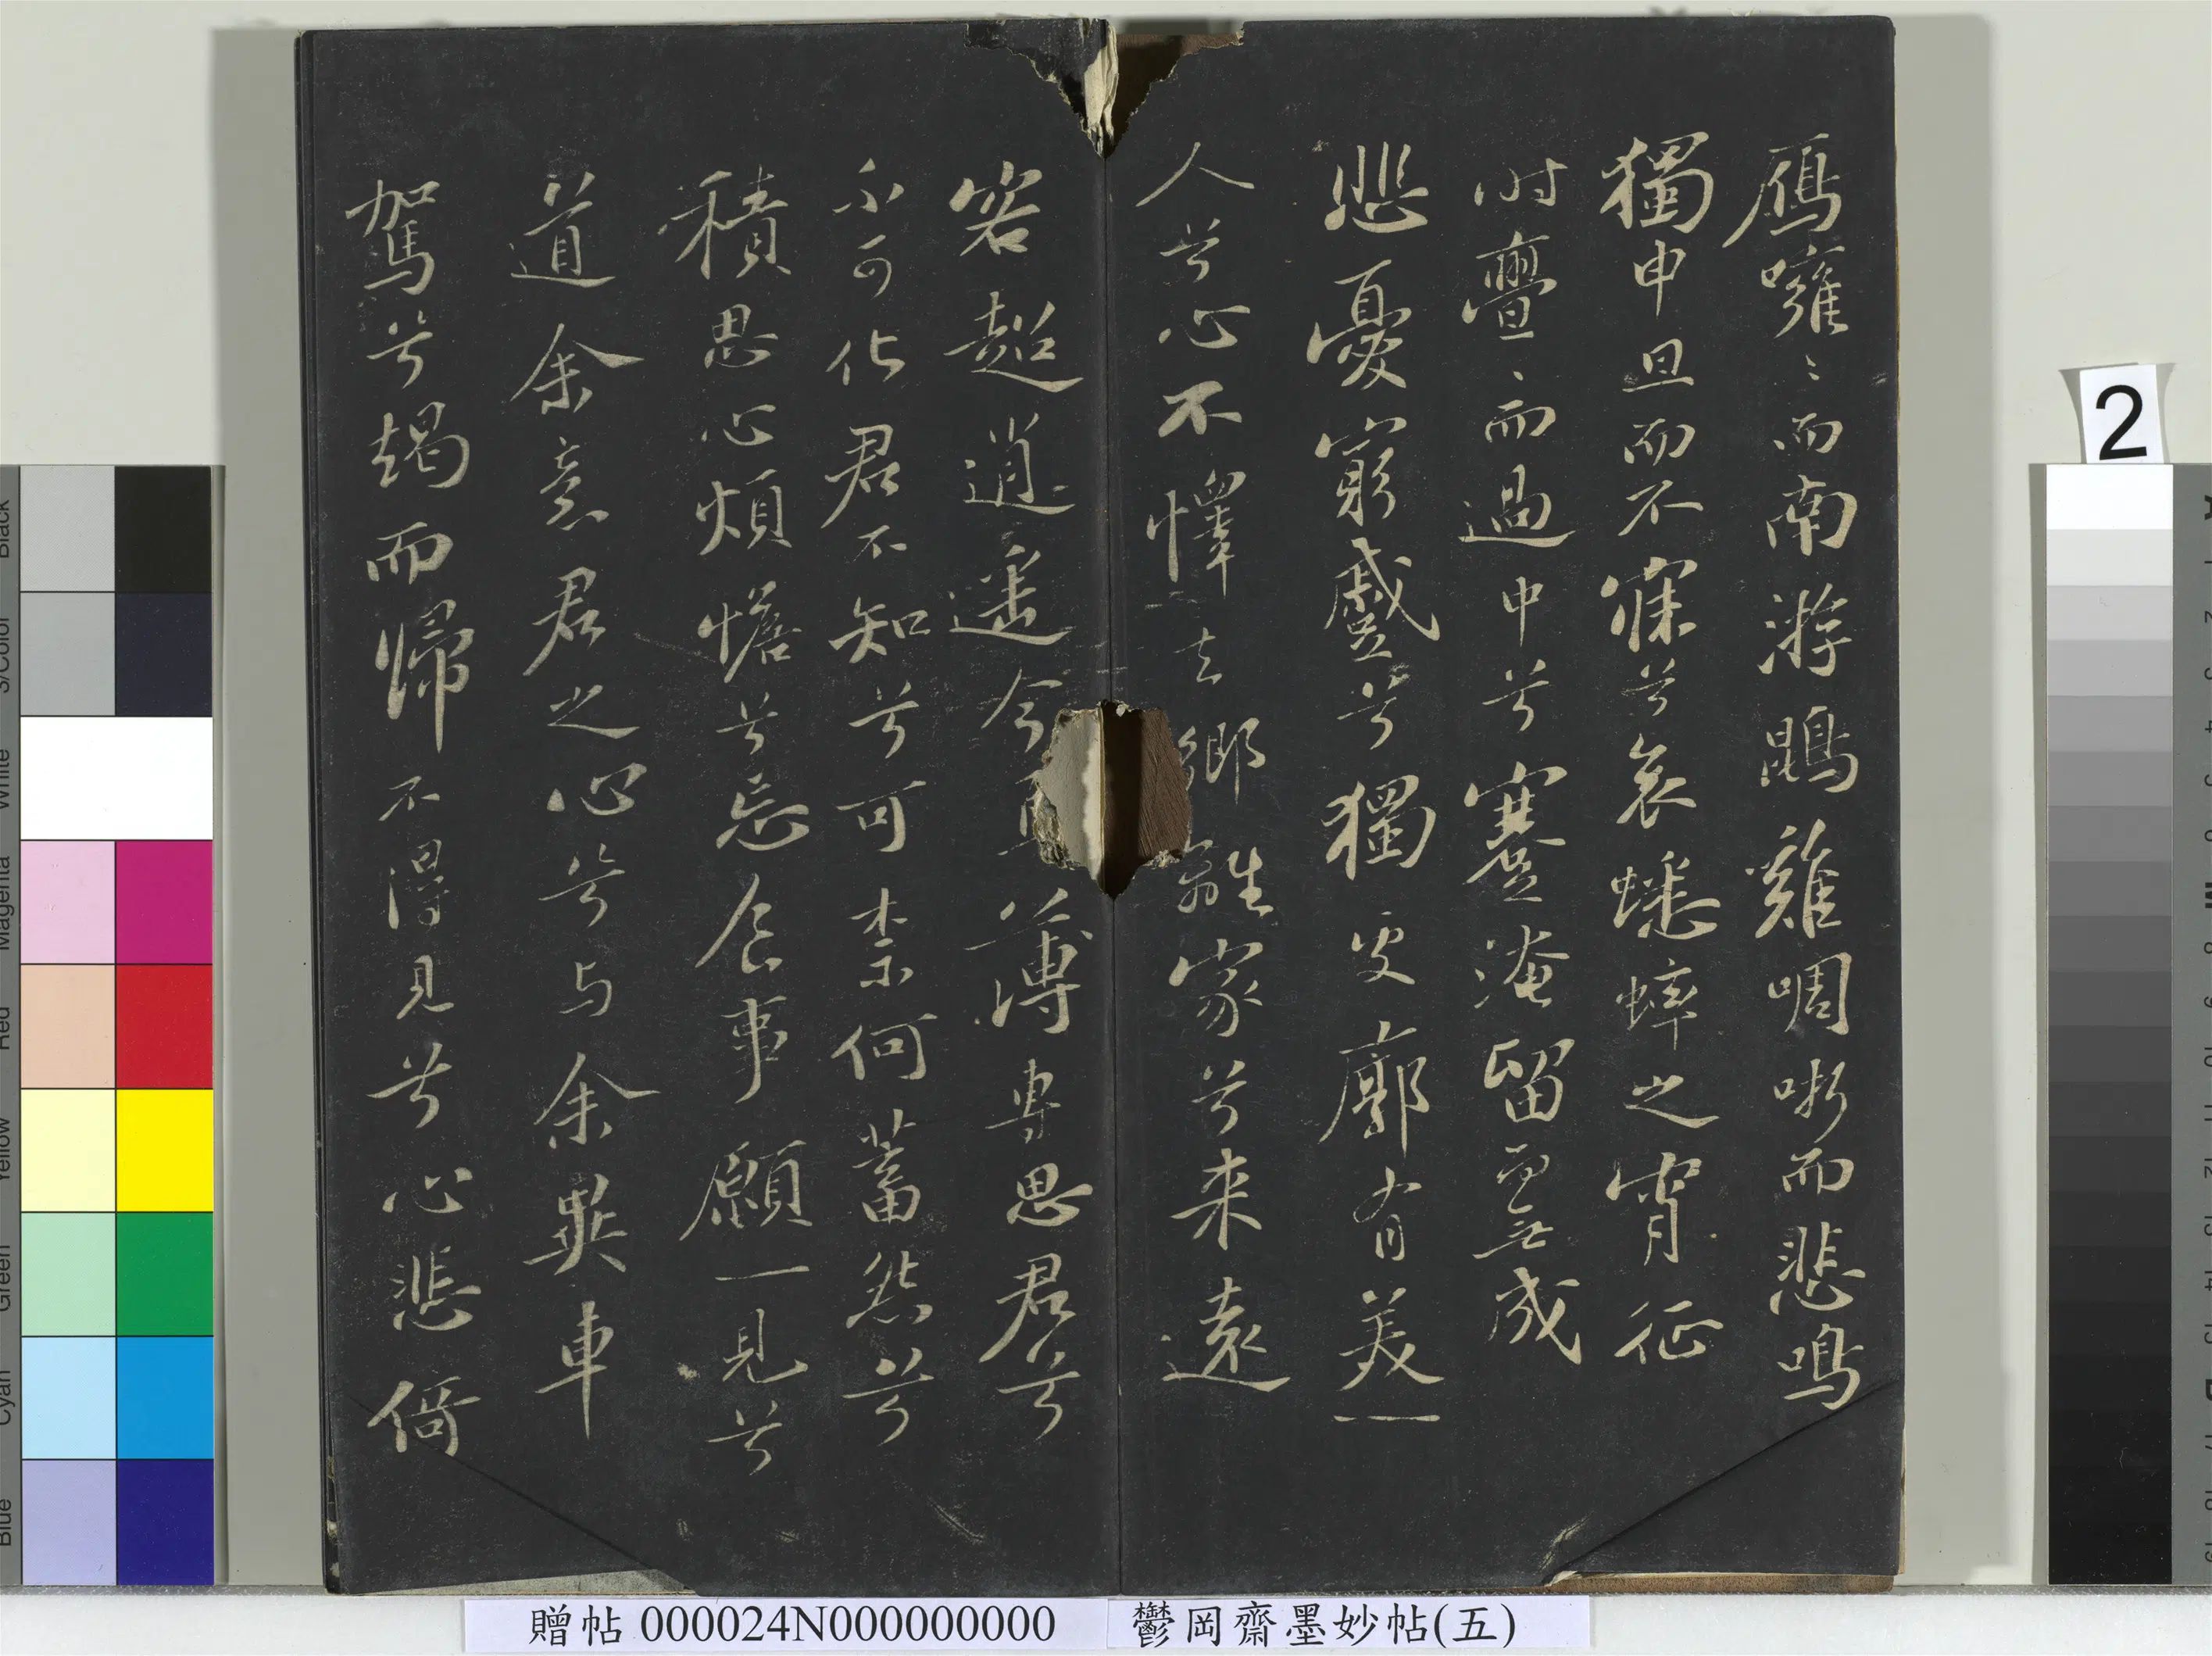 鴈噰〻而南游鵾雞啁哳而悲鳴
獨申旦而不寐兮哀蟋蟀之宵征
时亹〻而過中兮蹇淹留而無成
悲憂窮蹙兮獨处廓有美一
人兮心不懌去鄉離家兮来遠
客超逍遥今薄專思君兮
不可化君不知兮可柰何蓄怨兮
積思心煩憺兮忘食事願一見兮
道余意君之心兮与余異車
駕兮朅而歸不得見兮心悲倚
贈帖 000024N000000000
鬱岡齋墨妙帖(五)
2
Black
3/Color
White
Magenta
Red
Yellow
Green
Cyan
Blue